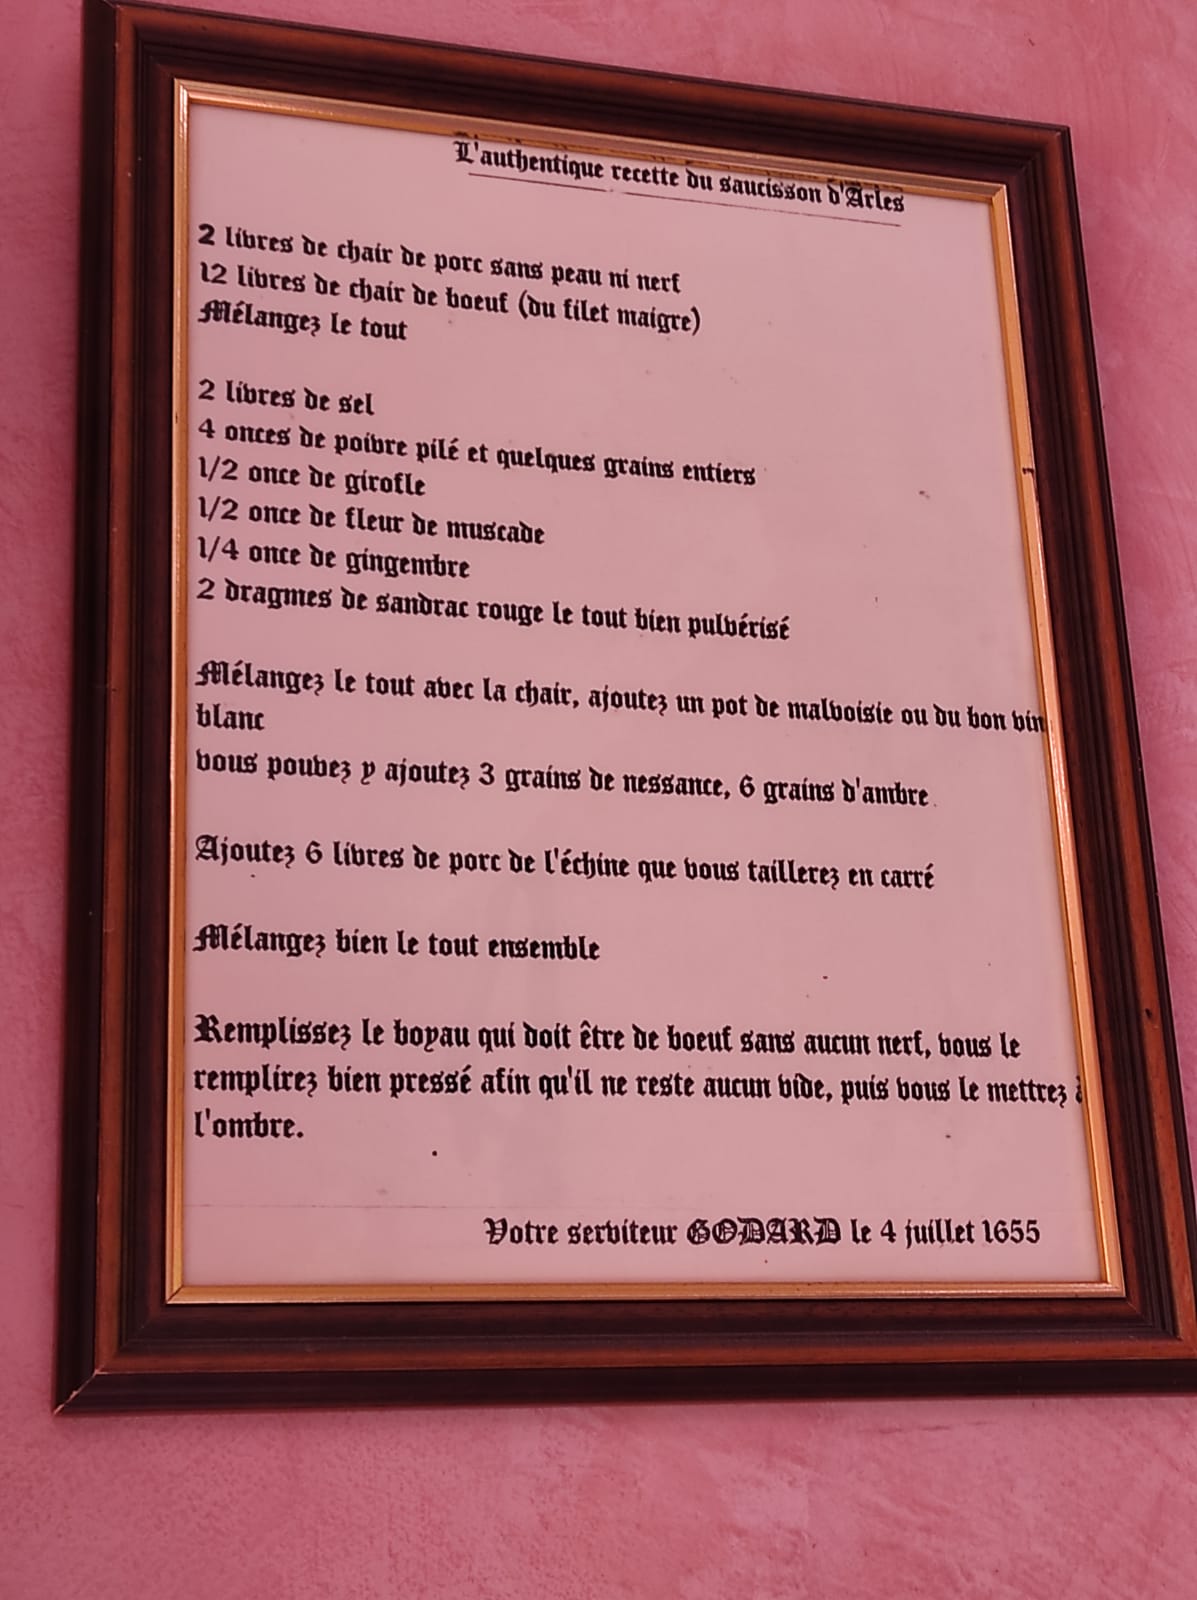 L'authentique recette du saucisson d'Arles
2 livres de chair de porc sans peau ni nerf
12 livres de chair de boeuf (du filet maigre)
Mélangez le tout
2 livres de sel
4 onces de poivre pilé et quelques grains entiers
1/2 once de girofle
1/2 once de fleur de muscade
1/4 once de gingembre
2 dragmes de sandrac rouge le tout bien pulvérisé
Mélangez le tout avec la chair, ajoutez un pot de malvoisie ou du bon vin
blanc
vous pouvez y ajoutez 3 grains de nessance, 6 grains d'ambre
Ajoutez 6 livres de porc de l'échine que vous taillerez en carré
Mélangez bien le tout ensemble
Remplissez le boyau qui doit être de boeuf sans aucun nerf, vous le
remplirez bien pressé afin qu'il ne reste aucun vide, puis vous le mettrez à
l'ombre.
Votre serviteur GODARD le 4 juillet 1655